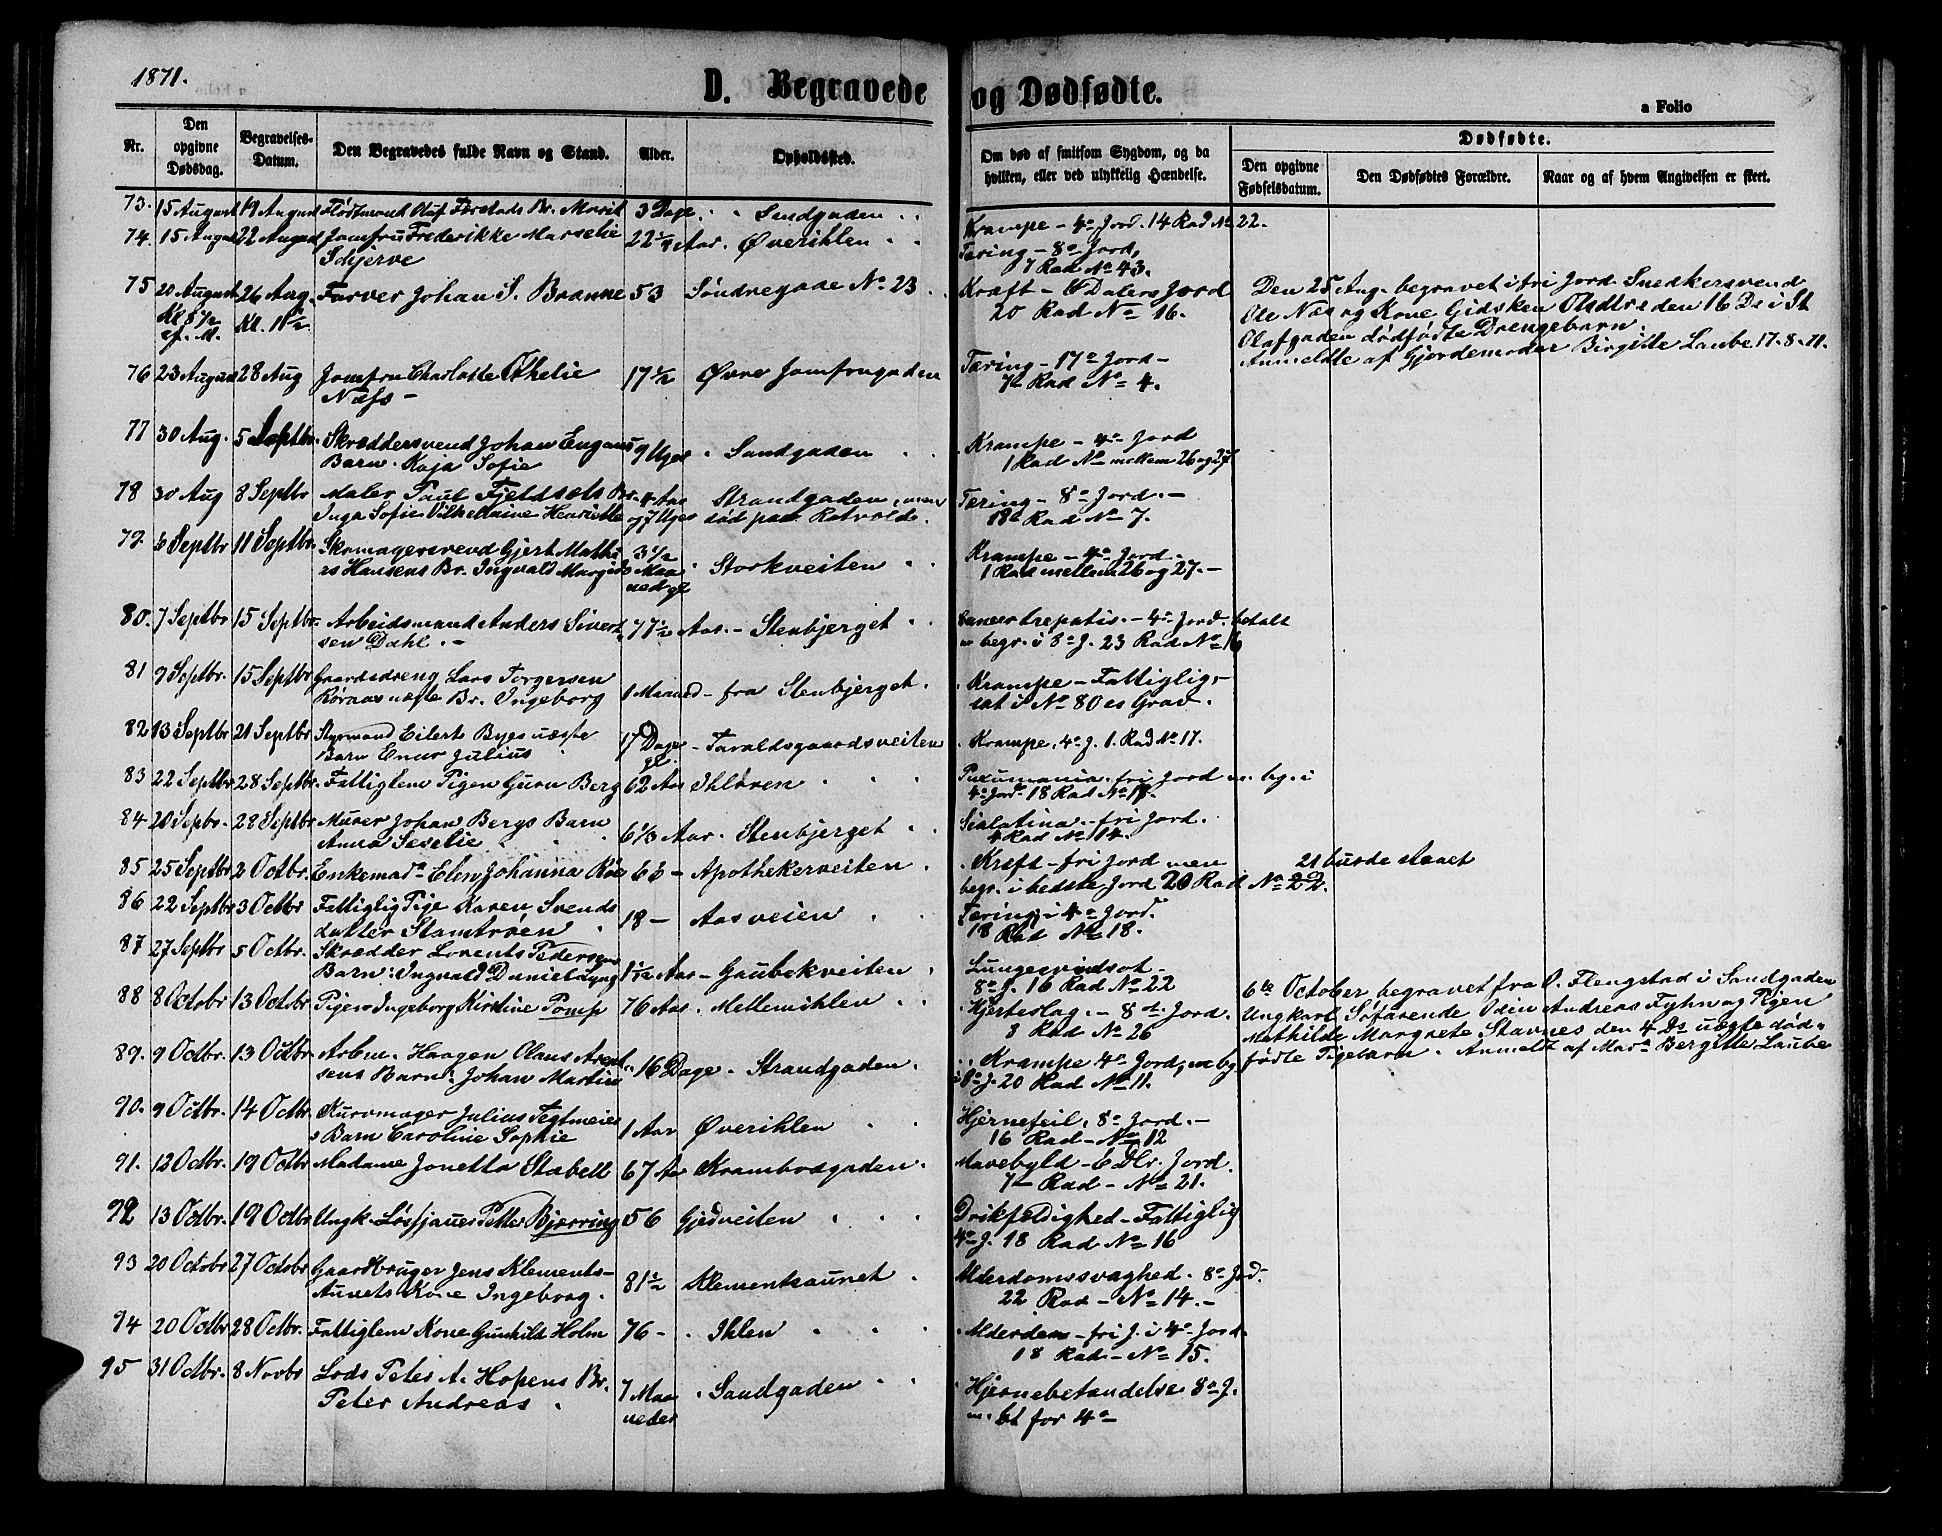 1871.
D. Begravede og Dødfødte.
a Folio
Nr.
Den opgivne Dødsdag.
Begravelses-Datum.
Den Begravedes fulde Navn og Stand.
Alder.
Opholdssted.
Om død af smitsom Sygdom, og da hvilken, eller ved ulykkelig Hændelse.
Dødfødte.
Den opgivne Fødselsdatum.
Den Dødfødtes Forældre.
Naar og af hvem Angivelsen er skeet.
73. 15 August 19 August Olaf Br. Marit 3 Dage Sandgaden Krampe - 4de Jord. 14 Rad No 22.
74. 15 August 22 August Jomfru Frederikke Marselie 22 1/4 Aar. Øverihlen Tæring - 8de Jord,
Schjerve 7 Rad No 43.
75 20 August 26 Aug. Farver Johan S. Branne 53 Søndregade No 23 Kræft - 6 Dalers Jord
Kl 8 1/2 Kl. 11 1/2 20 Rad No 16.
ef. M.
Den 25 Aug. begravet i fri Jord Snedkersvend
Ole Næs og Kone Gidsken Olsdtrs den 16 Ds i St
Olafgaden dødfødte Drengebarn.
Anmeldte af Gjordemoder Birgitte Laube 17-8-71.
76 23 August 28 Aug Jomfru Charlotte Othelie 17 1/2 Øvre Jomfrugaden Tæring - 17de Jord -
Næss - 7de Rad No 4.
77 30 Aug. 5 Septbr. Skræddersvend Johan Engans 9 Uger Sandgaden Krampe - 4de Jord
Barn. Kaja Sofie 1 Rad No mellem 26 og 27
78 30 Aug 8 Septbr Maler Paul Fjeldsets Br. 4 Aar Strandgaden, men Tæring - 8de Jord. -
Inga Sofie Vilhelmine Henriette og 7 Uger død paa Rotvold. 18de Rad No 7.
79. 6 Septbr 11 Septbr. Skomagersvend Gjert Mathi 3 1/2 Storkveiten Krampe - 4de Jord -
as Hansens Br. Ingvald Margido Maaned gl 1 Rad mellem 26 og 27. -
80. 7 Septbr 15 Septbr. Arbeidsmand Anders Sivert 77 1/2 Aar. - Stenbjerget Cancer hepatis. - 4de Jord. betalt
sen Dahl. - m begr. i 8de J. 23 Rad No 16
81 9 Septbr. 15 Septbr Gaardsdreng Lars Torgersen 1 Maaned - fra Stenbjerget. Krampe - Fattiglig -
Røraas uægte Br. Ingeborg sat i No 80es Grav.
82 13 Septbr 21 Septbr Styrmand Eilert Bygs uægte 17 Dage - Taraldsgaardsveiten Krampe, 4de J. 1. Rad No 17.
Barn Enur Julius gl.
83 22 Septbr 28 Septbr. Fattiglem Pigen Guru Berg 62 Aar Ihløren Pneumonia. fri Jord m. bg. i
4de Jord 18 Rad No 17.
84 20 Sepbr. 28 Septbr Murer Johan Bergs Barn 6 1/3 Aar. Stenbjerget fri Jord.
Anna Seselie 4 Rad No 14.
85 25 Septbr 2 Octbr. Enkemad. Elen Johanna Røe 63 - Apothekerveiten Kræft - fri Jord men 21 burde staaet
begr. i bedste Jord 20 Rad No 22.
86 22 Septbr 3 Octbr Fattiglig Pige Karen Svends 18 - Aasveien Tæring i 4de Jord.
datter Stamtrøen 18 Rad No 18.
87 27 Septbr 5 Octbr. Skrædder Lorents Pedersens 1 1/2 Aar - Gaubekveiten Lungesvindsot -
Barn: Ingvald Daniel Lyng 8de J. 16 Rad No 22
88 8 Octobr 13 Octbr Pigen Ingeborg Kirstine Pomp 76 Aar. Mellemihlen Hjerteslag. - 8de Jord.
8 Rad No 26
6te October begravet fra O. Flengstad i Sandgaden
Ungkarl Søfarende Odin Andreas Fyhn og Pigen
Mathilde Margrete Stavnes den 4 Ds uægte død-
fødte Pigebarn. Anmelt af Mad. Bergitte Laube
89. 9 Octbr. 13 Octbr. Arbm. Haagen Olaus Arent 16 Dage. Strandgaden. Krampe 4de Jord, m bg.
sens Barn: Johan Martin i 8de J. 20 Rad No 11.
90. 9 Octbr. 14 Octbr. Kurvmager Julius Tegtmeier 1 Aar Øverihlen Hjernefeil, 8de Jord. -
s Barn Caroline Sophie 16 Rad - No 12
91. 12 Octbr. 19 Octbr Madame Jonetta Stabell 67 Aar Krambodgaden. Mavebyld - 6 Dlr. Jord.
7de Rad - No 21.
92 13 Octbr. 19 Octbr Ungk. Løssjauer Petter Bjørring 56 Gjedveiten Drikfældighed - Fattiglig
4de J. 18 Rad No 16
93 20 Octobr 27 Octobr Gaardbruger Jens Klements- 81 1/2 Klementsaunet Alderdomssvaghed. 8de Jord.
Aunets Kone Ingeborg. 22 Rad - No 14. -
94 20 Octbr 28 Octbr. Fattiglem Kone Gunhild Holm 76 - Ihlen Alderdom - fri J. i 4de Jord.
18 Rad - No 15.
95 31 Octbr. 8 Novbr Lods Peter A. Hopens Br. 7 Maa Sandgaden Hjernebetændelse 8de J.
Peter Andreas neder m. bt for 4de